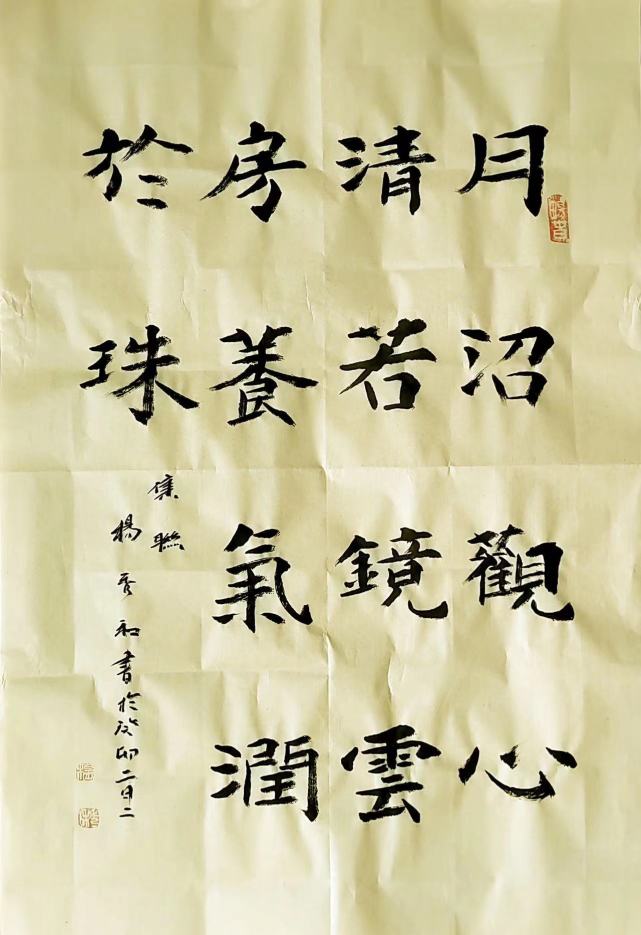 月沼觀心
清若鏡雲
房養氣潤
於珠
集聯
楊 和書於癸卯二月二